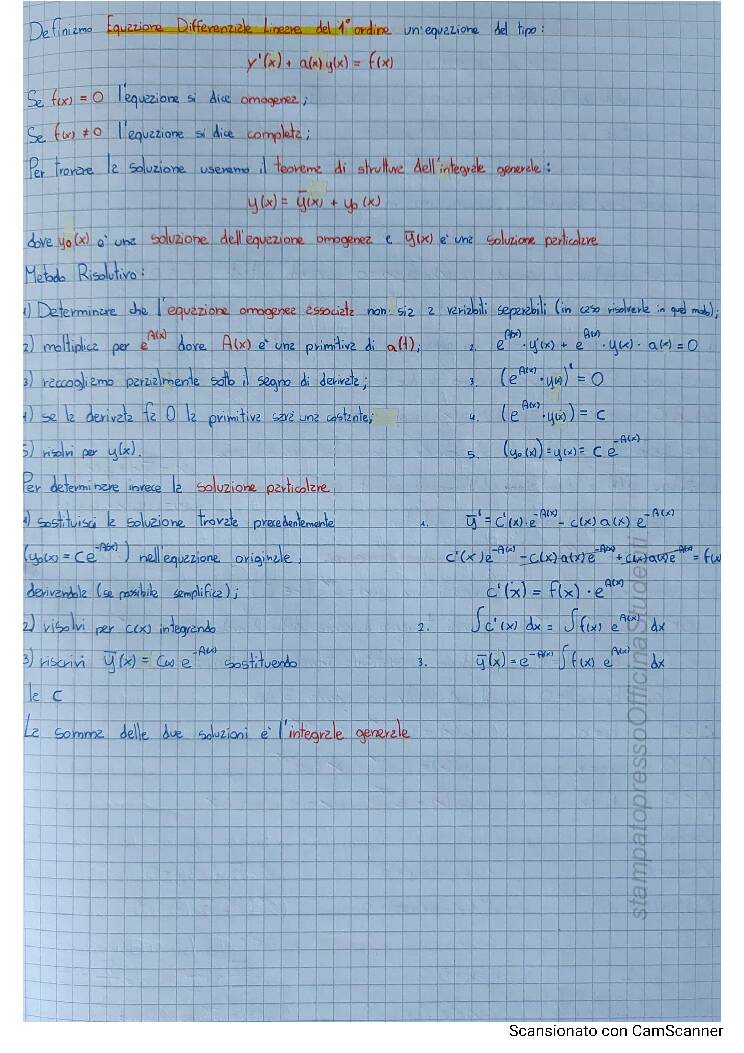 Definiamo Equazione Differenziale Lineare del 1° ordine un'equazione del tipo:
y'(x) + a(x) y(x) = f(x)
Se f(x) = 0 l'equazione si dice omogenea;
Se f(x) ≠ 0 l'equazione si dice completa;
Per trovare la soluzione useremo il teorema di struttura dell'integrale generale:
y(x) = ȳ(x) + y₀(x)
dove y₀(x) è una soluzione dell'equazione omogenea e ȳ(x) è una soluzione particolare
Metodo Risolutivo:
1) Determinare che l'equazione omogenea associata non sia a variabili separabili (in caso risolverla in quel modo);
2) moltiplica per e^A(x) dove A(x) è una primitiva di a(t); 2. e^A(x) · y'(x) + e^A(x) · y(x) · a(x) = 0
3) raccogliamo parzialmente sotto il segno di derivata; 3. (e^A(x) · y(x))' = 0
4) se la derivata fa 0 la primitiva sarà una costante; 4. (e^A(x) · y(x)) = c
5) risolvi per y(x). 5. (y₀(x)) = y(x) = c e^-A(x)
Per determinare invece la soluzione particolare
1) sostituisci la soluzione trovata precedentemente 1. ȳ' = c'(x) · e^-A(x) - c(x) a(x) e^-A(x)
(y₀(x) = c e^-A(x)) nell'equazione originale, c'(x) e^-A(x) - c(x) a(x) e^-A(x) + c(x) a(x) e^-A(x) = f(x)
derivandola (se possibile semplifica); c'(x) = f(x) · e^A(x)
2) risolvi per c(x) integrando 2. ∫c'(x) dx = ∫f(x) e^A(x) dx
3) riscrivi ȳ(x) = c(x) e^-A(x) sostituendo 3. ȳ(x) = e^-A(x) ∫f(x) e^A(x) dx
la c
La somma delle due soluzioni è l'integrale generale
stampatopressoOfficinaStudenti
Scansionato con CamScanner